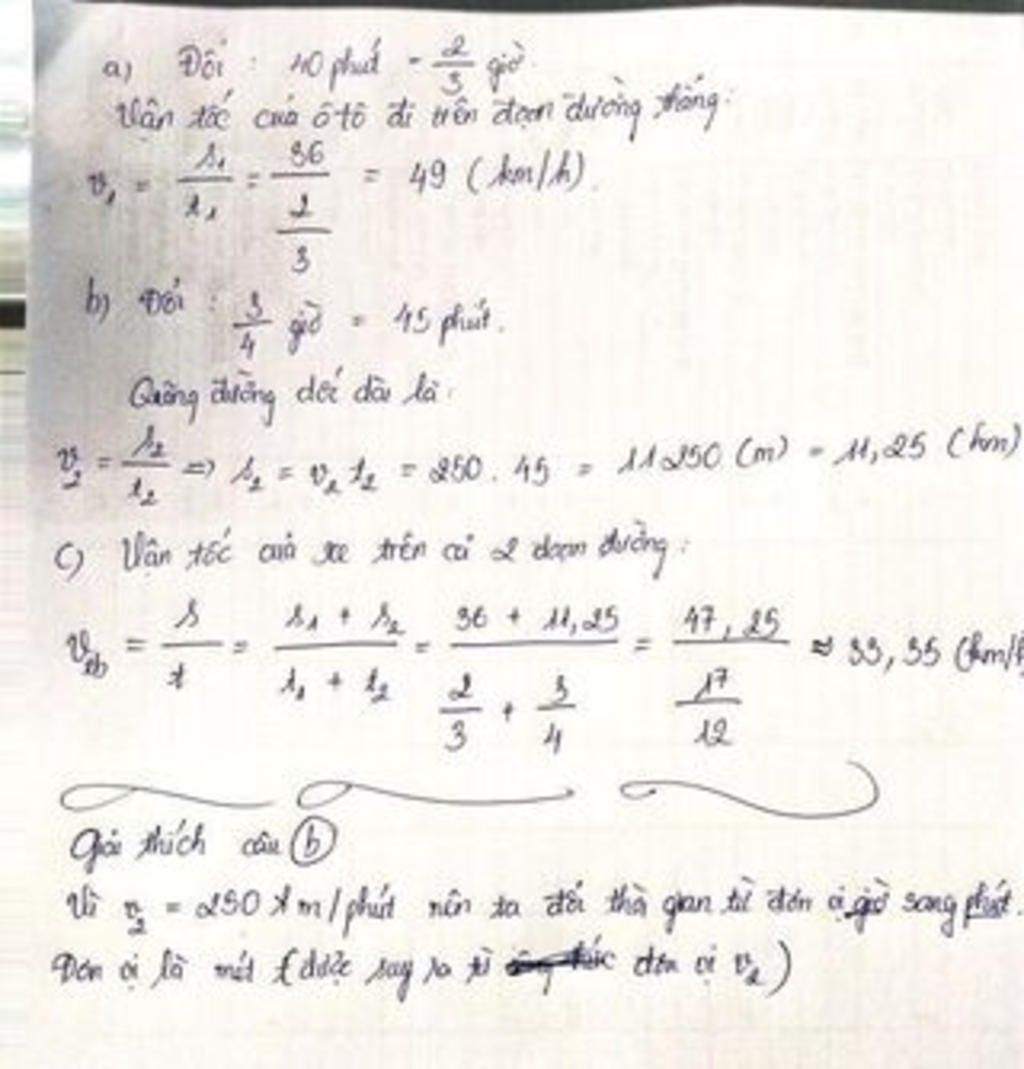 a) Đổi : 40 phút = 2/3 giờ.
Vận tốc của ôtô đi trên đoạn đường thẳng:
v₁ = s₁/t₁ = 36/(2/3) = 49 (km/h).
b) Đổi : 3/4 giờ = 45 phút.
Quãng đường dốc dài là:
v₂ = s₂/t₂ => s₂ = v₂ t₂ = 250 . 45 = 11250 (m) = 11,25 (km)
c) Vận tốc của xe trên cả 2 đoạn đường:
v_tb = s/t = (s₁ + s₂)/(t₁ + t₂) = (36 + 11,25)/(2/3 + 3/4) = 47,25/(17/12) ≈ 33,35 (km/h
Giải thích câu b
Vì v₂ = 250 m/phút nên ta đổi thời gian từ đơn vị giờ sang phút.
Đơn vị là mét (được suy ra từ đơn vị v₂)